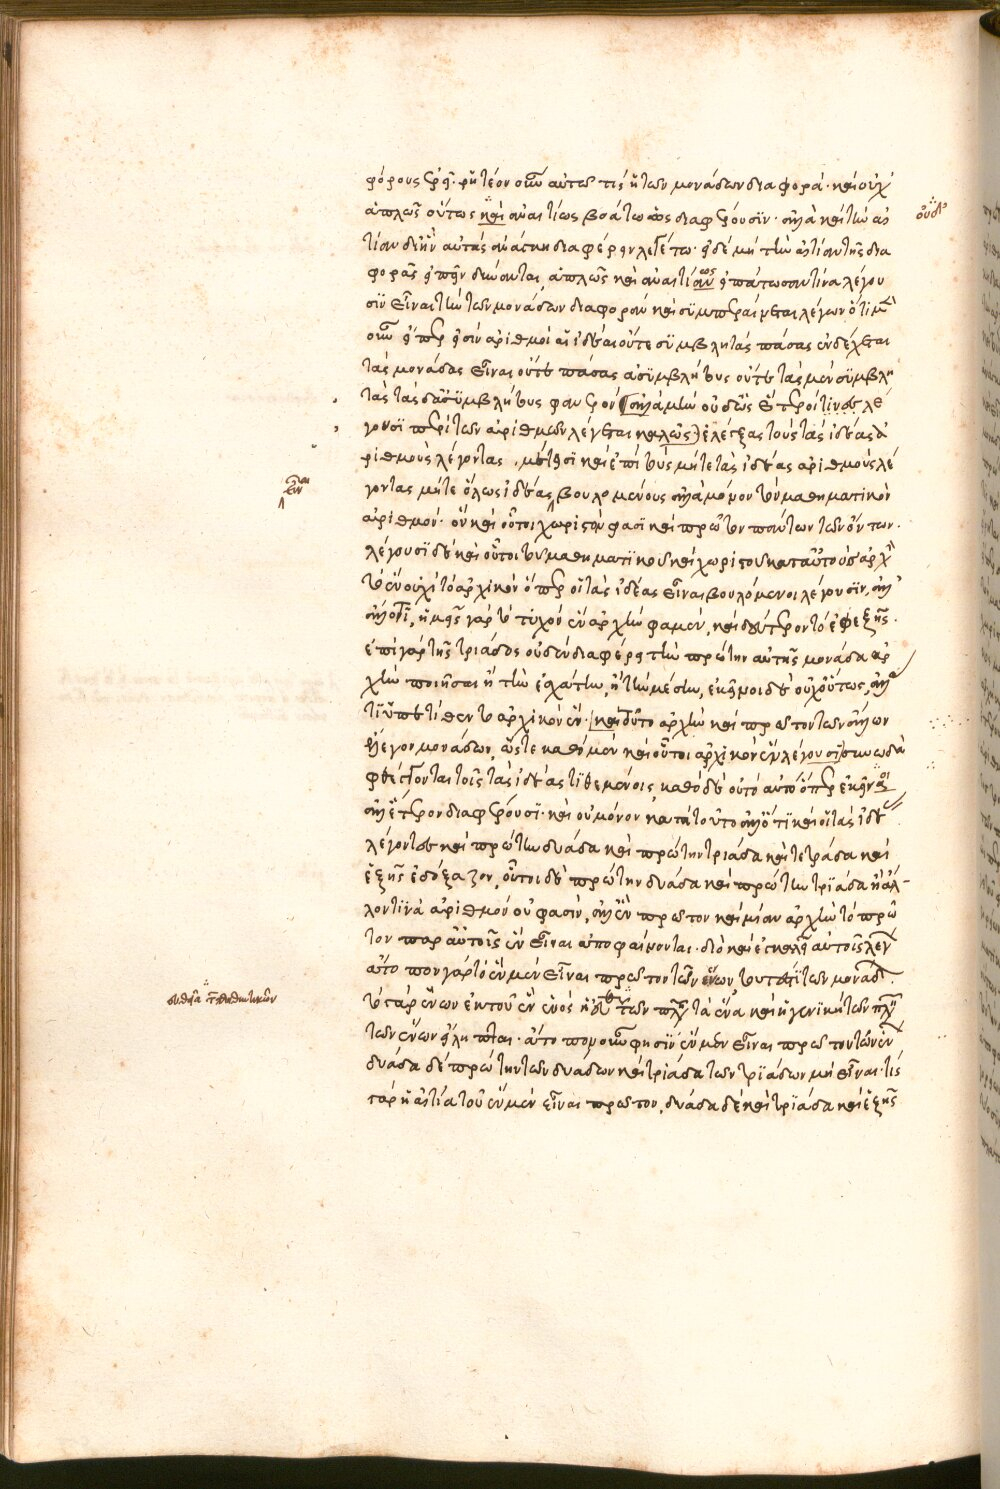 φόρους ῥητέον οὖν αὐτῷ τίς ἡ τῶν μονάδων διαφορά· καὶ οὐχ
ἁπλῶς οὕτως καὶ ἀναιτίως διαφέρουσιν· ἀλλὰ καὶ τὴν αἰ
οὐδ'
τίαν δι' ἣν αὐτὰς ἀνάγκη διαφέρειν λεγέτω· εἰ δὲ μὴ τὴν αἰτίαν τῆς δια
φορᾶς εἰπεῖν δύνανται, ἁπλῶς καὶ ἀναιτίως εἰπάτωσαν τίνα λέγου
σιν εἶναι τὴν τῶν μονάδων διαφορὰν καὶ συμπεραίνεται λέγων ὅτι μὲν
οὖν εἴπερ εἰσὶν ἀριθμοὶ αἱ ἰδέαι οὔτε συμβλητὰς πάσας ἐνδέχεται
τὰς μονάδας εἶναι οὔτε πάσας ἀσυμβλήτους οὔτε τὰς μὲν συμβλη
τὰς τὰς δ' ἀσυμβλήτους φανερὸν ἀλλὰ μὴν οὐδ' ὡς ἕτεροί τινες λέ
γουσι περὶ τῶν ἀριθμῶν λέγεται καλῶς ἐλέγξας τοὺς τὰς ἰδέας ἀ
ριθμοὺς λέγοντας, μέτεισι καὶ ἐπὶ τοὺς μήτε τὰς ἰδέας ἀριθμοὺς λέ
εἶναι
γοντας μήτε ὅλως ἰδέας βουλομένους ἀλλὰ μόνον τὸν μαθηματικὸν
ἀριθμόν· ὃν καὶ οὗτοι χωριστόν φασι καὶ πρῶτον πάντων τῶν ὄντων.
λέγουσι δὲ καὶ οὗτοι τοῦ μαθηματικοῦ καὶ χωριστοῦ κατ' αὐτοὺς ἀρχὴν
τὸ ἓν οὐχὶ τὸ ἀρχικὸν ὅπερ οἱ τὰς ἰδέας εἶναι βουλόμενοι λέγουσιν, ἀλλ'
ἡμεῖς γὰρ τὸ τυχὸν ἓν ἀρχὴν φαμέν, καὶ δεύτερον τὸ ἐφεξῆς.
ἐπὶ γὰρ τῆς τριάδος οὐδὲν διαφέρει τὴν πρώτην αὐτῆς μονάδα ἀρ
χὴν ποιῆσαι ἢ τὴν ἐσχάτην, ἢ τὴν μέσην, ἐκεῖνοι δὲ οὐχ οὕτως, ἀλλά
τι ὑπετίθεντο ἀρχικὸν ἕν· καὶ τοῦτο ἀρχὴν καὶ πρῶτον τῶν ἄλλων
ἔλεγον μονάδων, ὥστε καθὸ μὲν καὶ οὗτοι ἀρχικὸν ἓν λέγουσι συνῳδὰ
φθέγγονται τοῖς τὰς ἰδέας τιθεμένοις, καθὸ δὲ οὐ τὸ αὐτὸ ὅπερ ἐκεῖνοι
ἀλλ' ἕτερον διαφέρουσι· καὶ οὐ μόνον κατὰ τοῦτο ἀλλ' ὅτι καὶ οἱ τὰς ἰδέας
λέγοντες καὶ πρώτην δυάδα καὶ πρώτην τριάδα καὶ τετράδα καὶ
ἑξῆς ἐδόξαζον, οὗτοι δὲ πρώτην δυάδα καὶ πρώτην τριάδα ἢ ἄλ-
λον τινὰ ἀριθμὸν οὔ φασιν, ἀλλ' ἓν πρῶτον καὶ μίαν ἀρχὴν τὸ πρῶ
τον παρ' αὐτοῖς ἓν εἶναι ἀποφαίνονται· διὸ καὶ ἐγκαλεῖ αὐτοῖς λέγων
ἄτοπον γὰρ τὸ ἓν μὲν εἶναι πρῶτον τῶν ἑνῶν
τῶν ἑνῶν εἴληπται· ἄτοπον οὖν φησιν ἓν μὲν εἶναι πρῶτον τῶν ἑνῶν
δυάδα δὲ πρώτην τῶν δυάδων καὶ τριάδα τῶν τριάδων μὴ εἶναι· τίς
γὰρ ἡ αἰτία τοῦ ἓν μὲν εἶναι πρῶτον, δυάδα δὲ καὶ τριάδα καὶ ἑξῆς